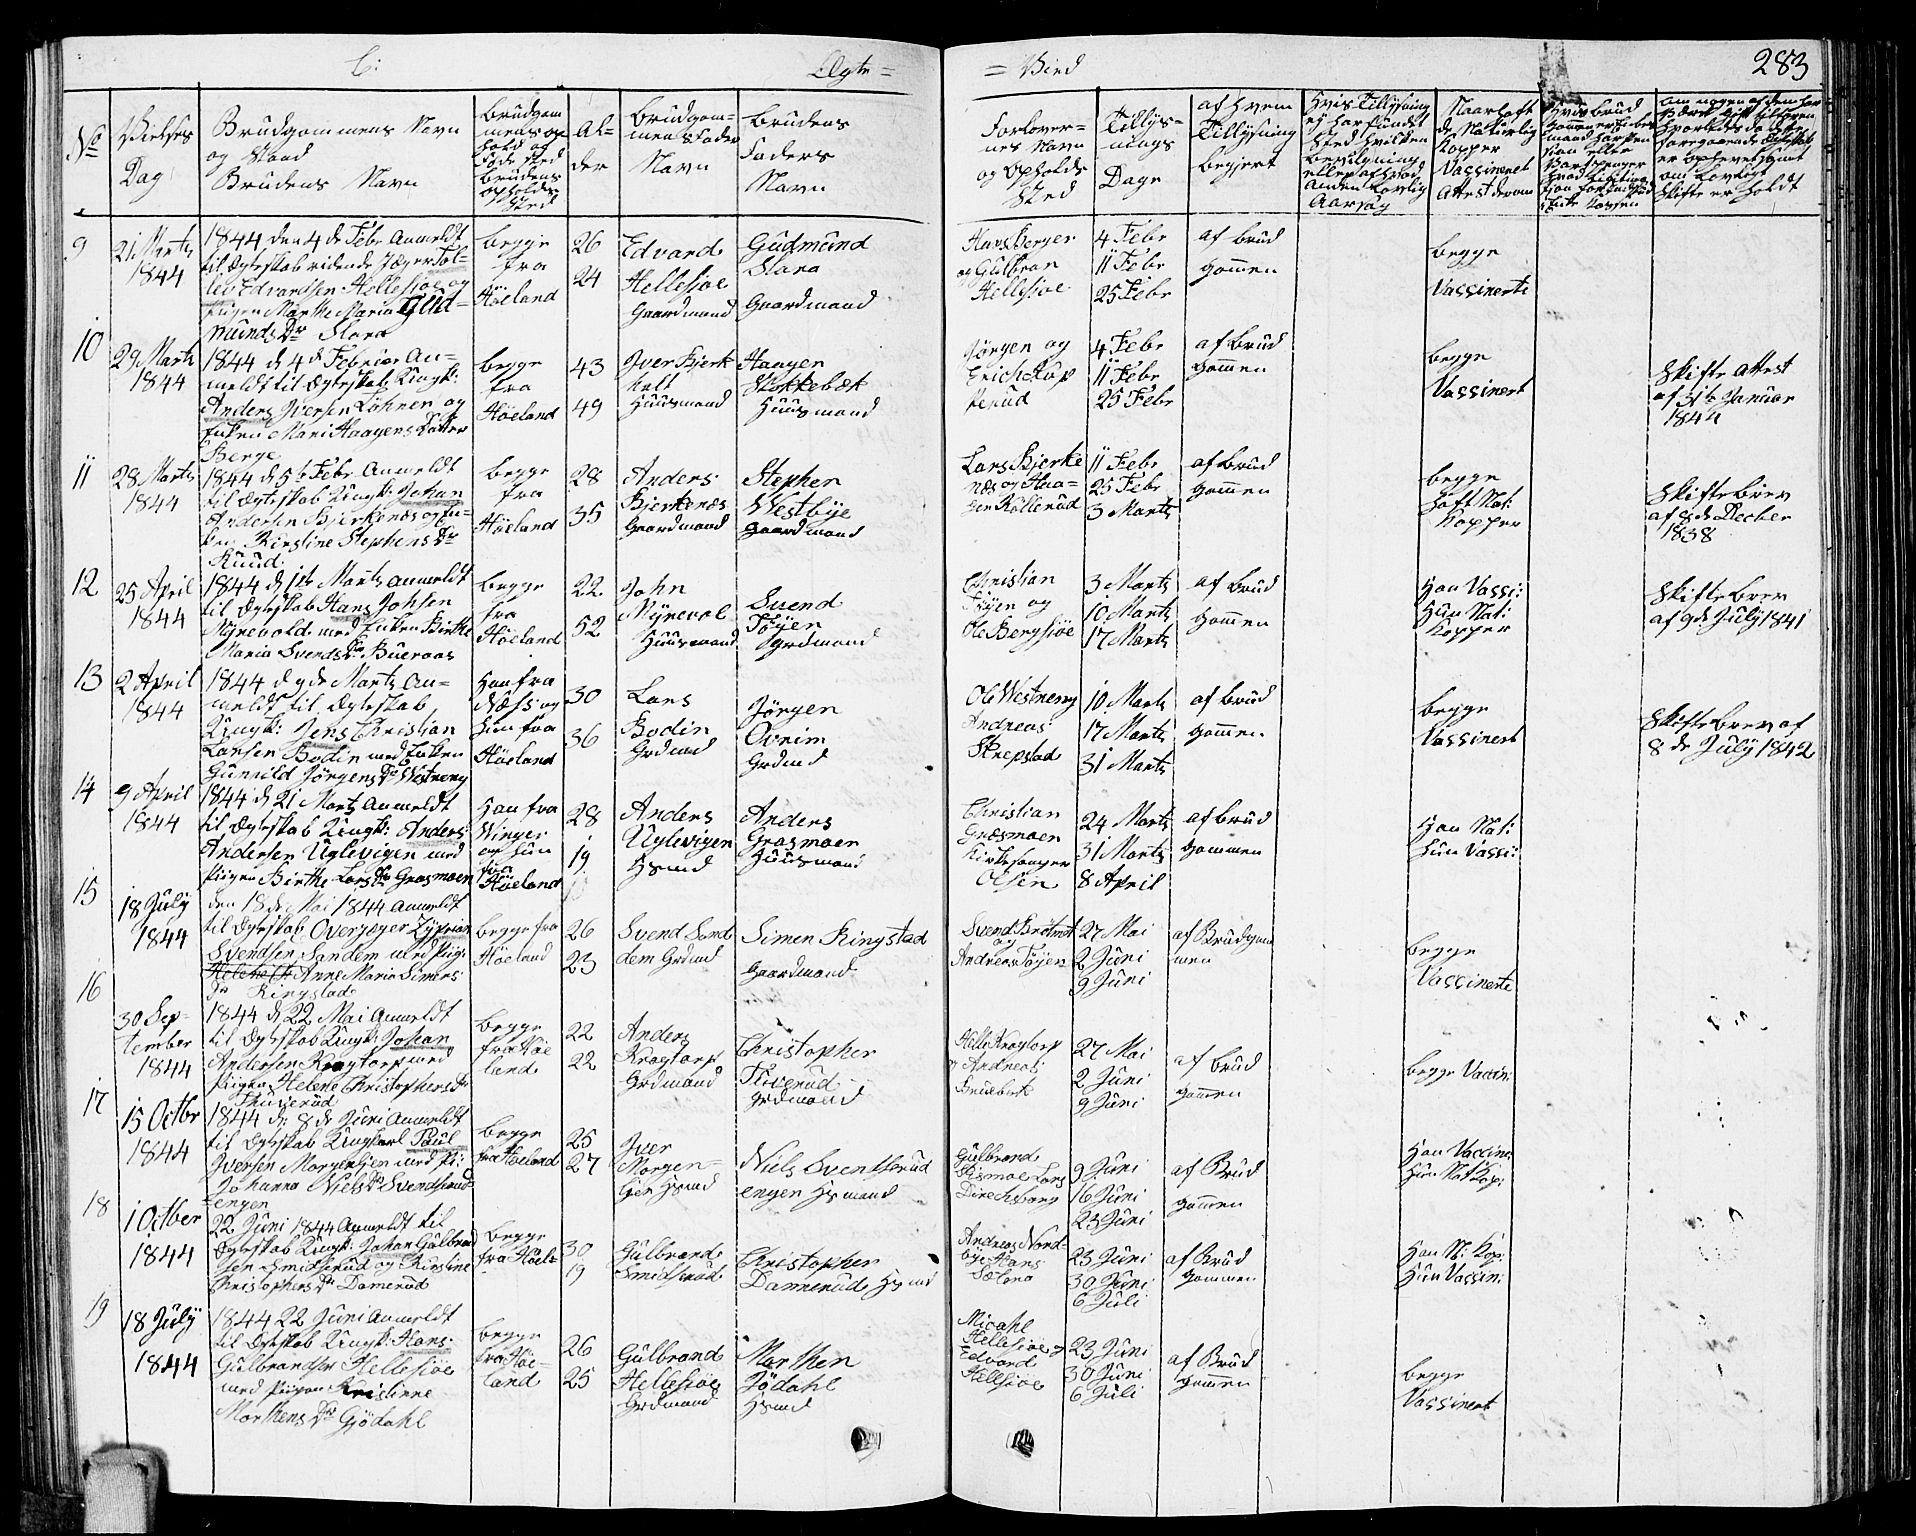 C:
Ægte =
= Vied
283
No
Vielses
Dag
Brudgommens Navn
og Stand
Brudens Navn
Al-
der
Brudgom-
mens Fader
Navn
Brudens
Faders
Navn
Forlover-
nes Navn
og Opholds
Sted
Tillys-
nings
Dage
af Hvem
Tillysning
begjert
9
21 Marts
1844
1844 den 4 de Febr Anmeldt
til Ægteskab ridende Jæger Tol-
lev Edvardsen Hellesiøe og
Pigen Marthe Maria Gud-
munds Dr Slara
begge
fra
Höeland
26
24
Edvard
Hellesiøe
Gaardmand
Gudmund
Slara
Gaardmand
Hans Berger
og Gulbran
Hellesiøe
4 Febr
11 Febr
25 Febr
af brud
gommen
begge
Vassinerte
10
29 Marts
1844
1844 d 4 de Februar An-
meldt til Ægteskab Ungk:
Anders Iversen Löhnen og
Enken Mari Haagens Datter
Berge
begge
fra
Höeland
43
49
Iver Bjerk
holt
Huusmand
Haagen
Stokkebæk
Huusmand
Jörgen og
Erich Kop
perud
4 Febr
11 Febr
25 Febr
af brud
gommen
begge
Vassinert
Skifte Attest
af 31te Januar
1844
11
28 Marts
1844
1844 d 5te Febr Anmeldt
til Ægteskab Ungk: Johan
Andersen Bjerkenæs og En-
ken Kirstine Stephens Dr
Ruud
begge
fra
Höeland
28
35
Anders
Bjerkenæs
Gaardmand
Stephen
Westbye
Gaardmand
Lars Bjerke
næs og Haa-
gen Kollerud
11 Febr
25 Febr
3 Marts
af brud
gommen
begge
haft Nat:
Kopper
Skiftebrev
af 8 de Decber
1838
12
25 April
1844
1844 d 1te Marts Anmeldt
til Ægteskab Hans Johsen
Myrevold med Enken Birthe
Maria Svends Dr Bueraas
begge
fra
Höeland
22
52
John
Myrevol
Huusmand
Svend
Töyen
Grdmand
Christian
Töyen og
Ole Bergsiöe
3 Marts
10 Marts
17 Marts
af brud
gommen
Han Vassi:
Hun Nat:
Kopper
Skiftebrev
af 9 de July 1841
13
2 April
1844
1844 d 9 de Marts An-
meldt til Ægteskab
Ungk: Jens Christian
Larsen Bodin med Enken
Gunnild Jörgens Dr Westreng
Han fra
Næss og
hun fra
Höeland
30
36
Lars
Bodin
Grdmd
Jörgen
Ovrim
Grdmd
Ole Westreng
Andreas
Skrepstad
10 Marts
17 Marts
31 Marts
af brud
gommen
begge
Vassinert
Skiftebrev af
8 de July 1842
14
9 April
1844
1844 d 21 Marts Anmeldt
til Ægteskab Ungk: Anders
Andersen Uglevigen med
Pigen Birthe Lars Dr Grasmoen
Han fra
Winger
og hun
fra
Höeland
28
19
Anders
Uglevigen
Hsmd
Anders
Grasmoen
Huusmand
Christian
Græsmoen
Kirkesanger
Olsen
24 Marts
31 Marts
8 April
af brud
gommen
Han Nat:
Hun Vassi:
15
18 July
1844
den 18 de Mai 1844 Anmeldt
til Ægteskab Overjæger Zyprian
Svendsen Sandem med Pig:
Anne Maria Simens
Dr Ringstad
begge fra
Höeland
26
23
Svend Sand
dem Grdmd
Simen Ringstad
Gaardmand
Svend Brötmet
og
Andreas Töyen
27 Mai
2 Juni
9 Juni
af Brudgom
men
begge
Vassinerte
16
30 Sep-
tember
1844
1844 d 22 Mai Anmeldt
til Ægteskab Ungk: Johan
Andersen Kragtorp med
Pigen Helene Christophersd:
Thuverud
begge
fra Höe
land
22
22
Anders
Kragtorp
Grdmand
Christopher
Tuverud
Grdmand
Helle Kragtorp
og Andreas
27 Mai
2 Juni
9 Juni
af Brud
gommen
begge Vaccin:
17
15 Octbr
1844
1844 d: 8 de Juni Anmeldt
til Ægteskab Ungkarl Paul
Iversen Morgentien med Pi:
Johanna Niels Dr Svendsrud-
engen
begge
fra Höeland
25
27
Iver
Morgen-
tien Hsmd
Niels Svensrud
engen Hsmand
Gulbrand
Dismoe Lars
Dirichsberg
9 Juni
16 Juni
23 Juni
af Brud
gommen
Han Vaccin:
Hun Nat Kop:
18
1 Octber
1844
22 Juni 1844 Anmeldt til
Ægteskab Ungk: Johan Gulbrand
sen Smidsrud og Kirstine
Christophers Dr Damerud
begge
fra Höel-
30
19
Gulbrand
Smidsrud
Christopher
Dammerud Hsmd
Andreas Nord-
bye Hans
Sætera
23 Juni
30 Juni
6 Juli
af Brud
gommen
Han N: Kop:
Hun Vassin:
19
18 July
1844
1844 22 Juni Anmeldt
til Ægteskab Ungk: Hans
Gulbrandsr Hellesiöe
med Pigen Kristinne
Marthens Dr Gjödahl
begge
fra Höe-
land
26
25
Gulbrand
Hellesiöe
Grdmand
Marthen
Jödahl
Hsmd
Micahl
Hellesiöe og
Edvard
Hellesiöe
23 Juni
30 Juni
6 Juli
af Brud
gommen
begge
Vassinert